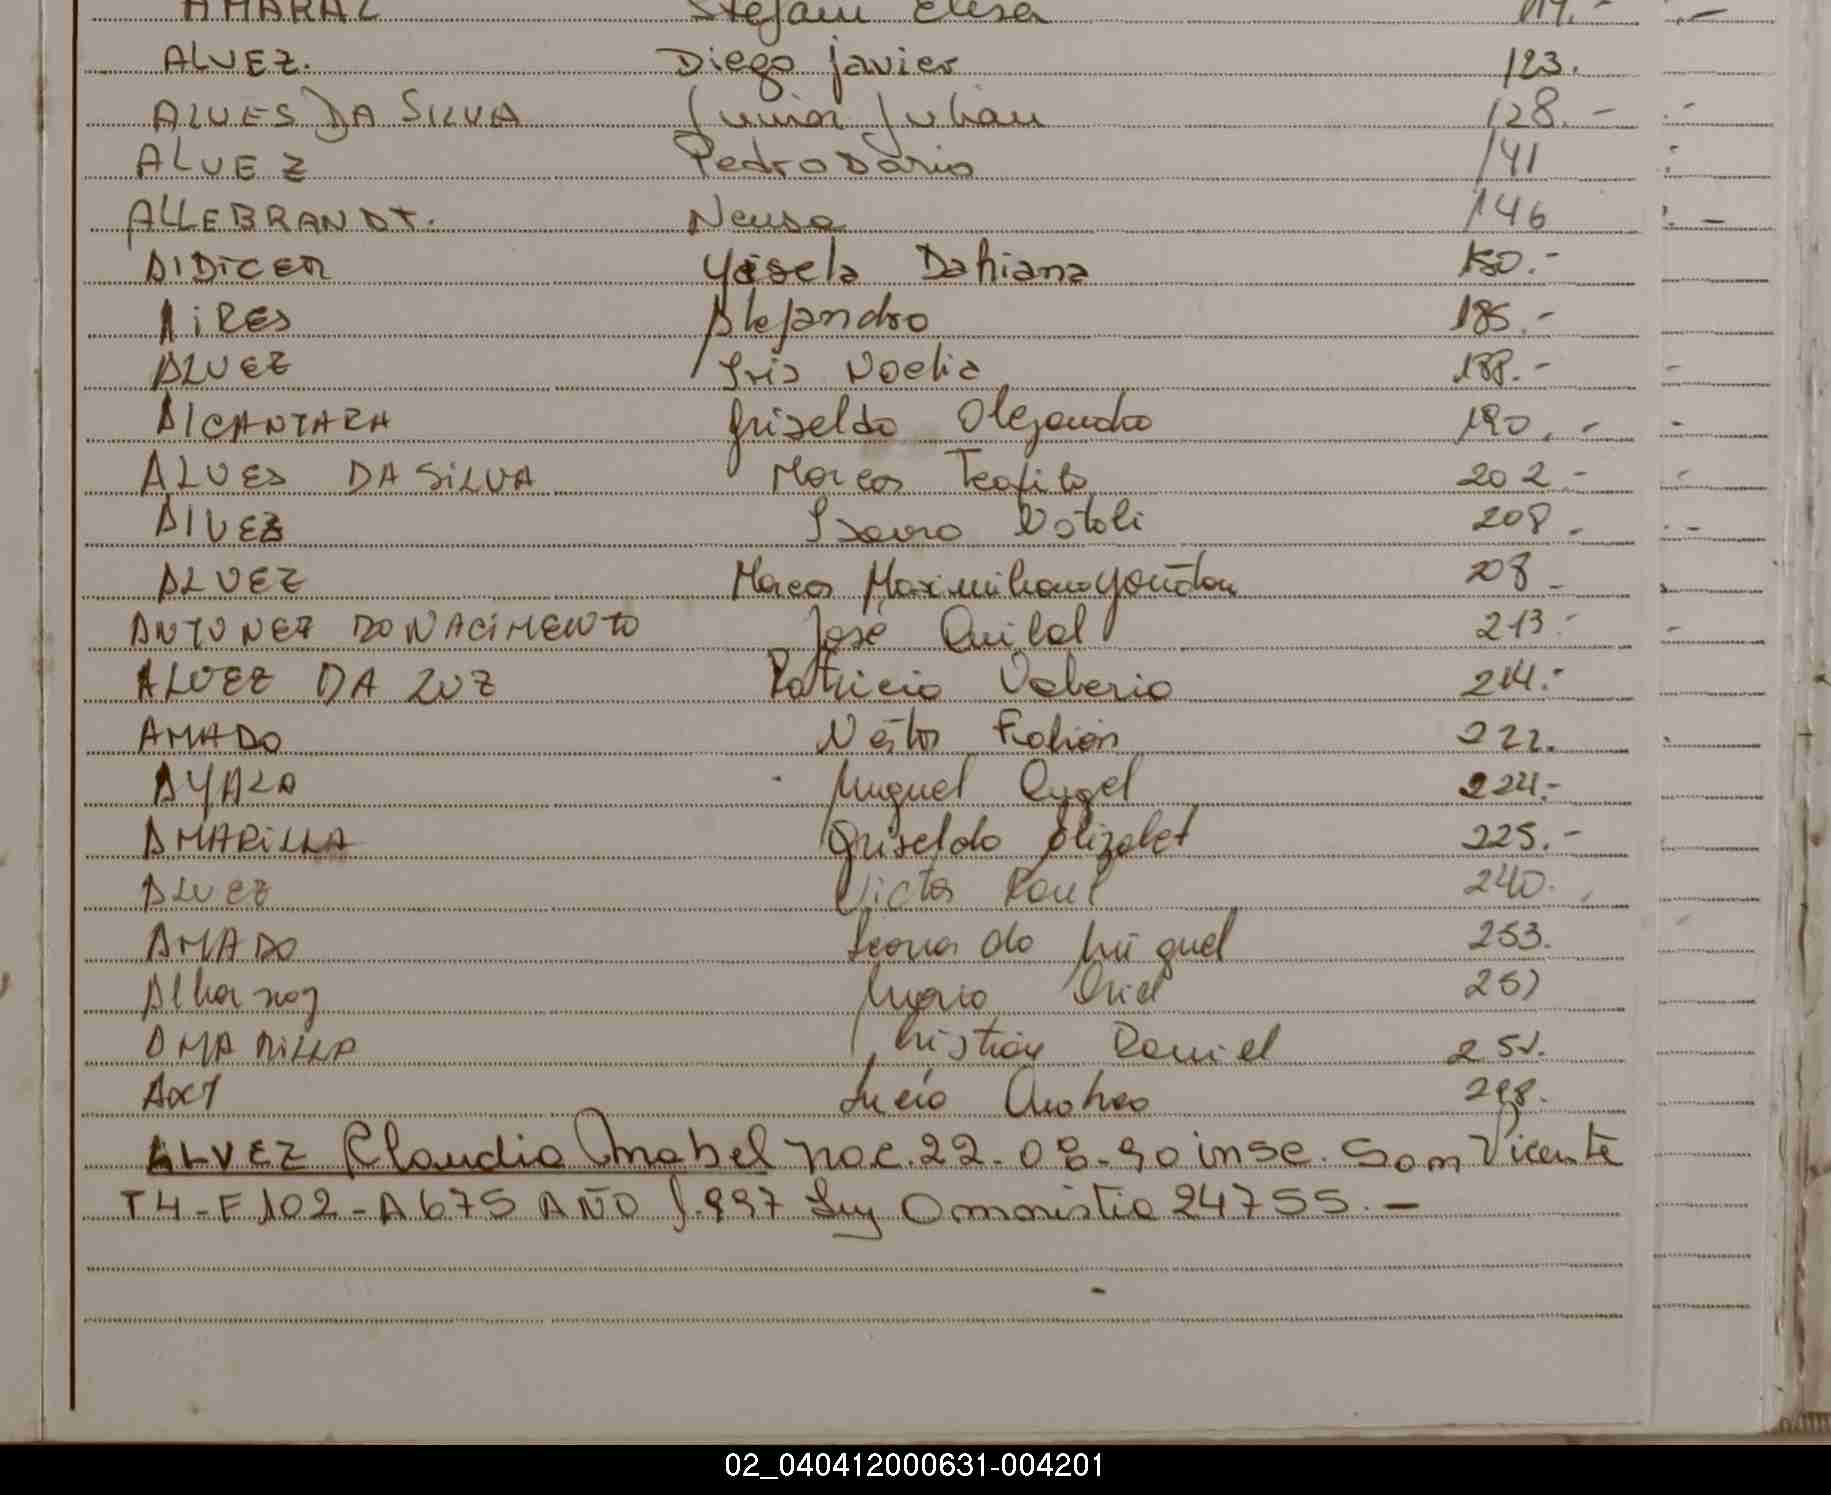 AMARAL Stefani Elisa 119.-
ALVEZ. Diego javier 123.
ALVES DA SILVA Junior Julian 128.-
ALVEZ Pedro Dario 141
ALLEBRANDT. Neusa 146
DIDICER Yisela Dahiana 150.-
AiRES Alejandro 185.-
ALVEZ Iris Noelia 188.-
AlCANTARA Griselda Alejandra 190.-
ALVES DA SiLVA Marcos Teofilo 202.-
AlVEZ Isauro 208.
ALVEZ Marcos Maximiliano 208
ANTUNEZ DO NACiMENTO José 213.-
ALVEZ DA LUZ Patricia Valeria 214.-
AMADO Néstor Fabián 222.
AYALA Miguel Angel 224.-
AMARiLLA Griselda Elizabet 225.-
ALVEZ Victor Raul 240.
AMADO Leonardo Miguel 253.
Albornoz Mario 257
AMARiLLA Cristian Daniel 251.
AXT Lucía 298.
ALVEZ Claudia Anabel nac. 22-08-90 insc. San Vicente
T4-F102-A675 AÑO 1.997 Ley Omnistia 24755.-
02_040412000631-004201